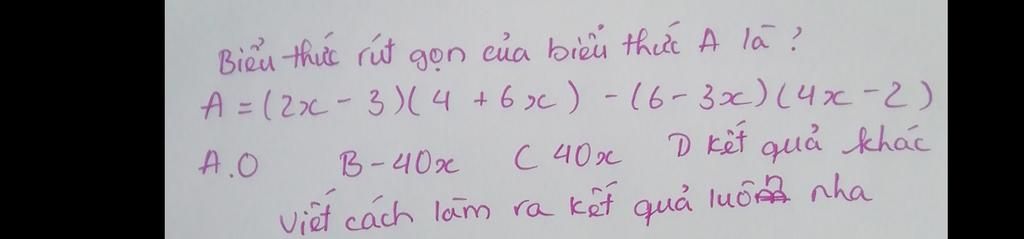 Biểu thức rút gọn của biểu thức A là?
A = (2x - 3)(4 + 6x) - (6 - 3x)(4x - 2)
A. 0 B - 40x C 40x D kết quả khác
Viết cách làm ra kết quả luôn nha